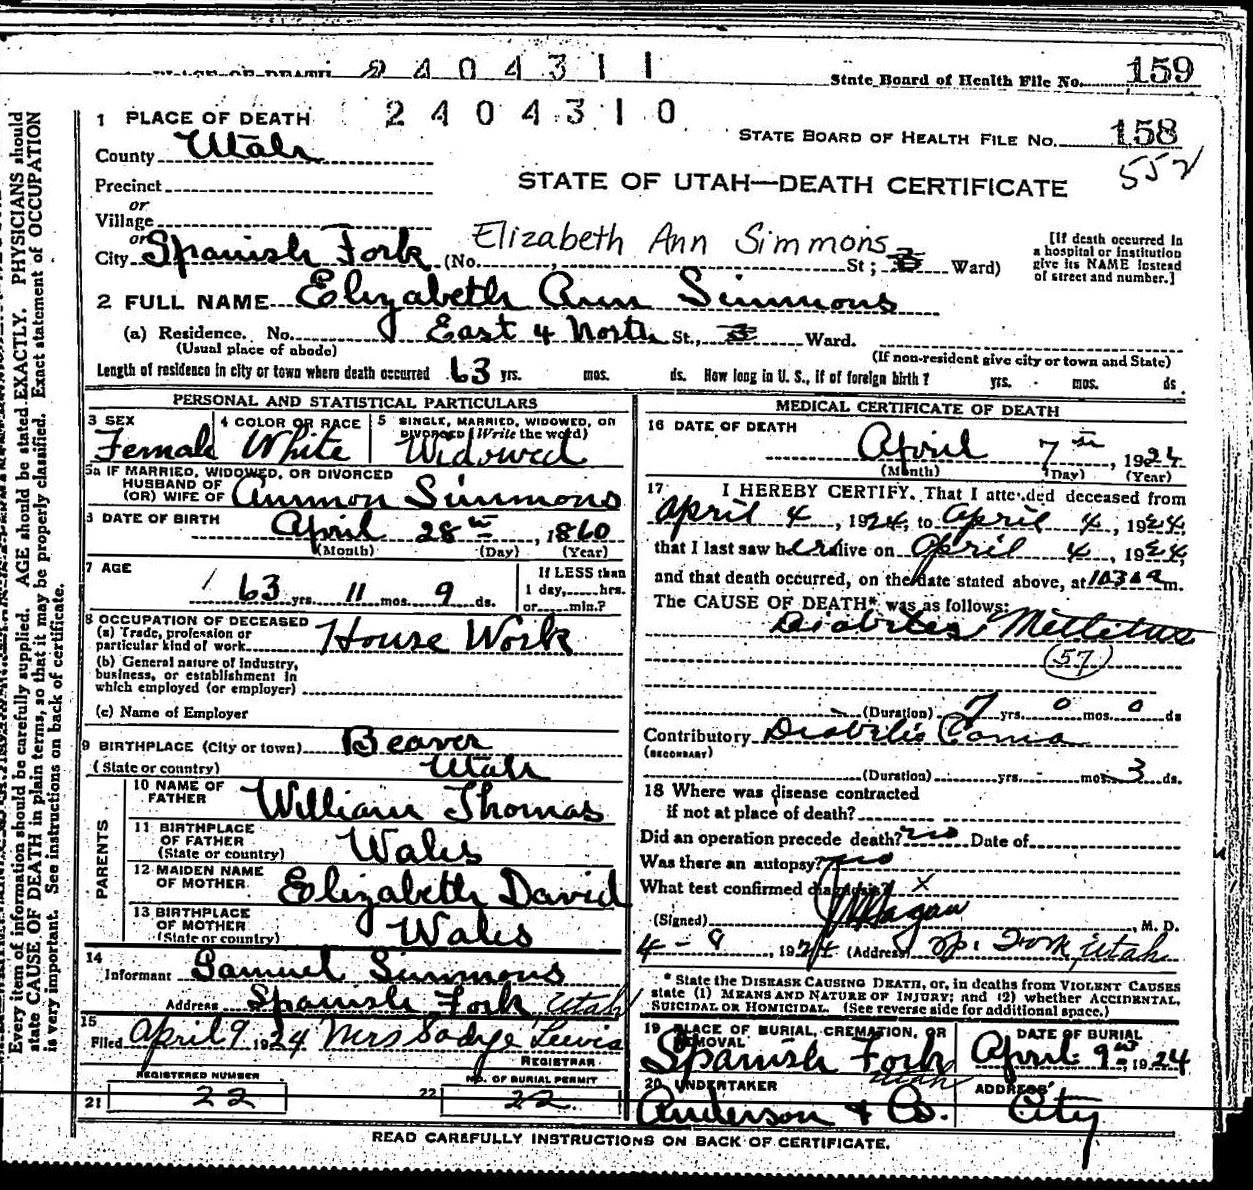 PLACE OF DEATH 2404311 State Board of Health File No. 159
1 PLACE OF DEATH 2404310
STATE BOARD OF HEALTH FILE NO. 158
552
County Utah
Precinct
STATE OF UTAH—DEATH CERTIFICATE
or
Village
or
City Spanish Fork (No. Elizabeth Ann Simmons St; 3 Ward)
[If death occurred in
a hospital or institution
give its NAME instead
of street and number.]
2 FULL NAME Elizabeth Ann Simmons
(a) Residence. No. East 4 North St., 3 Ward.
(Usual place of abode) (If non-resident give city or town and State)
Length of residence in city or town where death occurred 63 yrs. mos. ds. How long in U. S., if of foreign birth? yrs. mos. ds.
PERSONAL AND STATISTICAL PARTICULARS
3 SEX
Female
4 COLOR OR RACE
White
5 SINGLE, MARRIED, WIDOWED, OR
DIVORCED (Write the word)
Widowed
5a IF MARRIED, WIDOWED, OR DIVORCED
HUSBAND OF
(OR) WIFE OF Ammon Simmons
6 DATE OF BIRTH April 28th, 1860
(Month) (Day) (Year)
7 AGE
63 yrs. 11 mos. 9 ds.
If LESS than
1 day, hrs.
or min.?
8 OCCUPATION OF DECEASED
(a) Trade, profession or
particular kind of work House Work
(b) General nature of industry,
business, or establishment in
which employed (or employer)
(c) Name of Employer
9 BIRTHPLACE (City or town) Beaver
(State or country) Utah
PARENTS
10 NAME OF
FATHER William Thomas
11 BIRTHPLACE
OF FATHER
(State or country) Wales
12 MAIDEN NAME
OF MOTHER Elizabeth David
13 BIRTHPLACE
OF MOTHER
(State or country) Wales
14
Informant Samuel Simmons
Address Spanish Fork Utah
15
Filed April 9 1924 Mrs Sadye Lewis
REGISTRAR
REGISTERED NUMBER NO. OF BURIAL PERMIT
21 22 22 22
MEDICAL CERTIFICATE OF DEATH
16 DATE OF DEATH
April 7th, 1924
(Month) (Day) (Year)
17 I HEREBY CERTIFY, That I attended deceased from
April 4, 1924, to April 4, 1924,
that I last saw her alive on April 4, 1924,
and that death occurred, on the date stated above, at 1030 a m.
The CAUSE OF DEATH* was as follows:
Diabites Mellitus
57
(Duration) 7 yrs. 0 mos. 0 ds
Contributory Diabitis Coma
(SECONDARY)
(Duration) yrs. - mos. 3 ds.
18 Where was disease contracted
if not at place of death?
Did an operation precede death? no Date of
Was there an autopsy? no
What test confirmed diagnosis? X
(Signed) Hagan M. D.
4-9 1924 (Address) Sp. Fork, Utah
* State the DISEASE CAUSING DEATH, or, in deaths from VIOLENT CAUSES
state (1) MEANS AND NATURE OF INJURY; and (2) whether ACCIDENTAL,
SUICIDAL OR HOMICIDAL. (See reverse side for additional space.)
19 PLACE OF BURIAL, CREMATION, OR
REMOVAL
Spanish Fork
Utah
DATE OF BURIAL
April 9th, 1924
20 UNDERTAKER
Anderson & Co.
ADDRESS
City
READ CAREFULLY INSTRUCTIONS ON BACK OF CERTIFICATE.
Every item of information should be carefully supplied. AGE should be stated EXACTLY. PHYSICIANS should
state CAUSE OF DEATH in plain terms, so that it may be properly classified. Exact statement of OCCUPATION
is very important. See instructions on back of certificate.